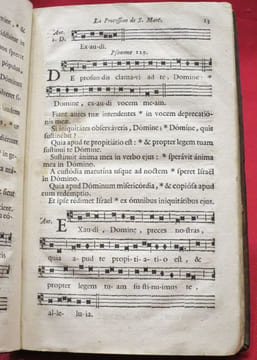 La Procession de S. Marc. 13
Ant.
1. D.
Ex-au-di.
Pseaume 129.
DE profundis clamavi ad te, Domine: *
Domine, ex-au-di vocem me-am.
Fiant aures tuæ intendentes * in vocem deprecatio-
nis meæ.
Si iniquitátes observáveris, Dómine: * Dómine, quis
sustinébit?
Quia apud te propitiátio est: * & propter legem tuam
sustinui te Dómine.
Sustinuit ánima mea in verbo ejus: * sperávit ánima
mea in Dómino.
A custódia matutína usque ad noctem * speret Israël
in Dómino.
Quia apud Dóminum misericórdia, * & copiósa apud
eum redemptio.
Et ipse rédimet Israel * ex ómnibus iniquitátibus ejus.
Ant.
EXaudi, Domine, preces nostras,
quia a-pud te propi-ti-a-ti-o est, &
propter legem tu-am su-sti-nu-imus te,
al-le- lu-ia.